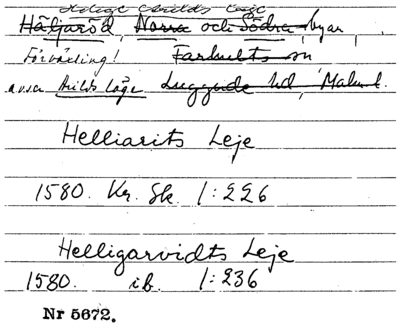 Helige Arilds läge
Häljaröd, Norra och Södra, byar
Förväxling! Farhults sn
avser Arilds läge Luggude hd, Malm. l.
Helliarits Leje
1580. Kr. Sk. 1:226
Helligarvidts Leje
1580. ib. 1:236
Nr 5672.